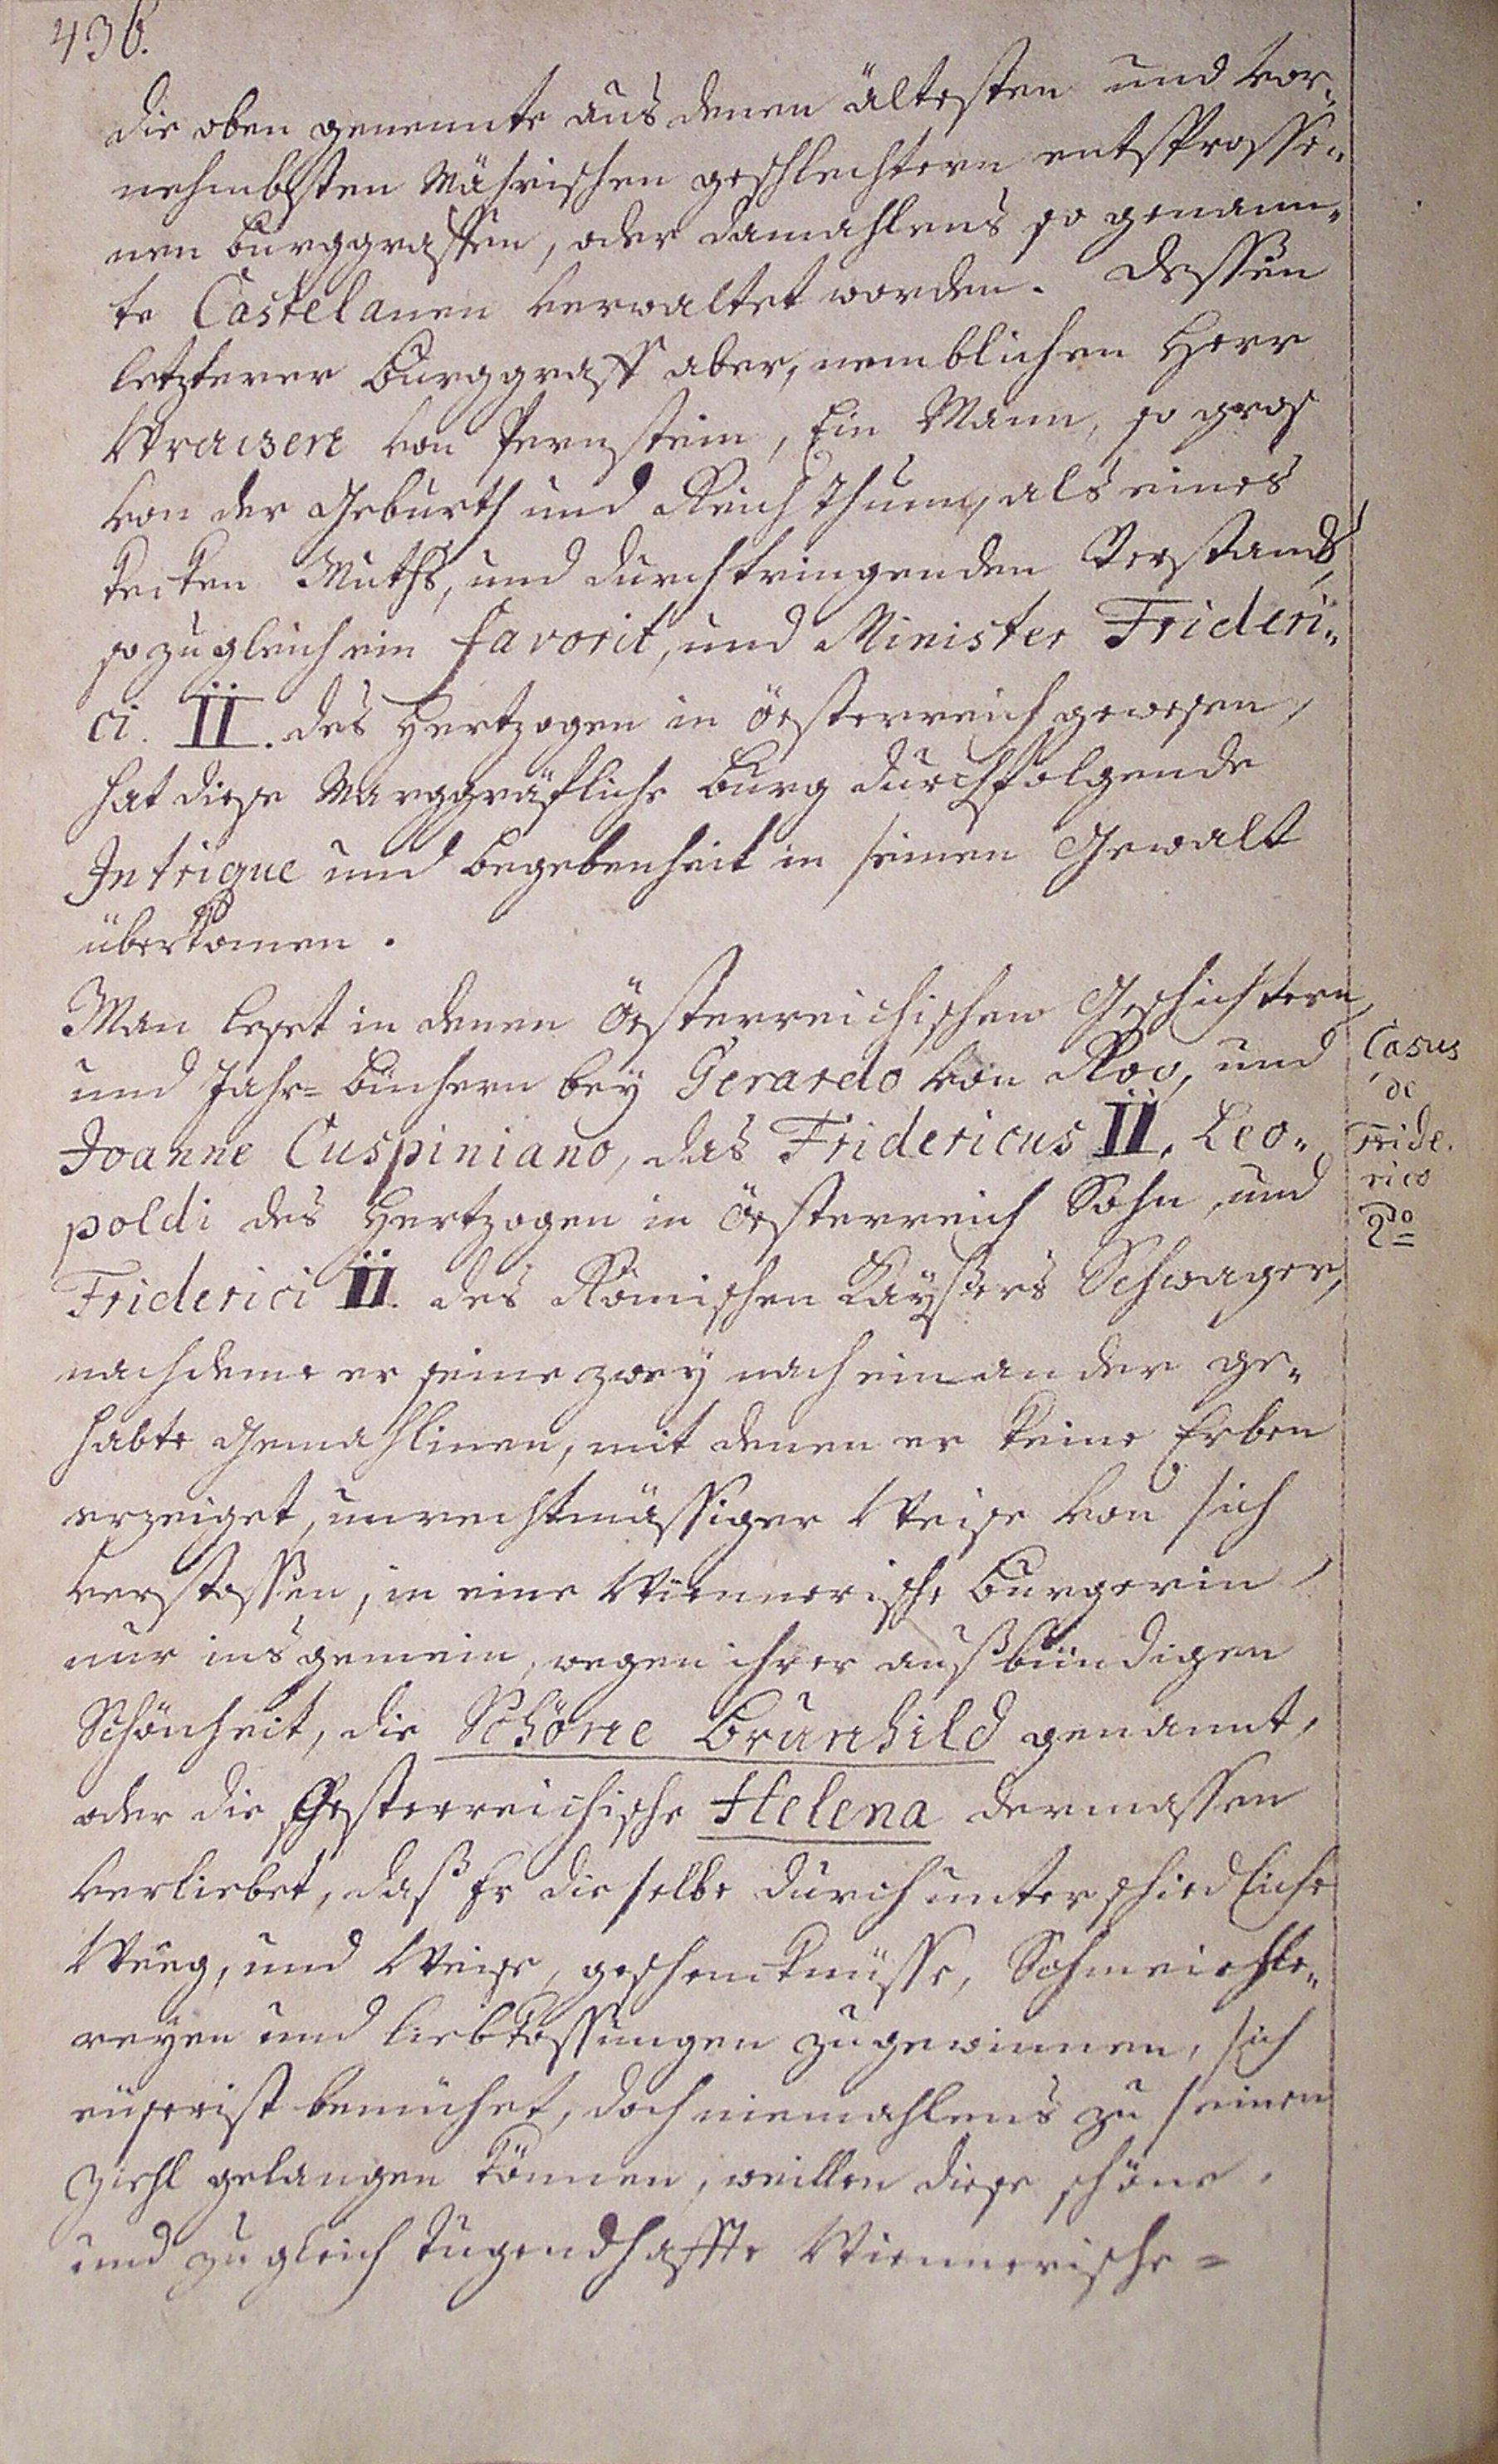 436.
die oben genennte aus denen ältesten und vor„
nehmbsten Mährischen geschlechtern entsprosse„
nen burggraffen, oder damahlens so genann„
te Castelanen verwaltet worden. dessen
letzterer burggraff aber, nemblichen Herr
von Pernstein, Ein Mann, so gros
von der Geburth und Reichthum, als eines
kecken Muths, und durchtringenden Verstands,
so zugleich ein favorit, und Minister Frideri„
ci. II. des Hertzogen in österreich gewesen,
hat diese Marggräfliche burg durch folgende
Intrique und begebenheit in seinen Gewalt
überkomen.
Man leset in denen österreichischen Geschichtern,
und Jahr= büchern bey Gerardo von Roo, und
Joanne Cuspiniano, das Fridericus II. Leo„
poldi des Hertzogen in österreich Sohn, und
Friderici II. des Römischen Kaÿsers Schwager,
nachdeme er seine zweÿ nach einander ge„
habte Gemahlinen, mit denen er keine Erben
erzeiget, unrechtmässiger Weise von sich
verstossen, in eine Wiennerische burgerin,
nur ins gemein, wegen ihrer außbündigen
Schönheit, die Schöne Brunhild genannt,
oder die Oesterreichische Helena dermassen
verliebet, daß Er dieselbe durch unterschiedliche
Weeg, und Weise, geschencknüsse, Schmeichle„
reyen und liebkossungen zu gewinnen, sich
eüserist bemühet, doch niemahlens zu seinen
ziehl gelangen können, weillen diese schöne,
und zugleich tugendhaffte Wiennerische=
Casus
de
Fride.
rico
2do